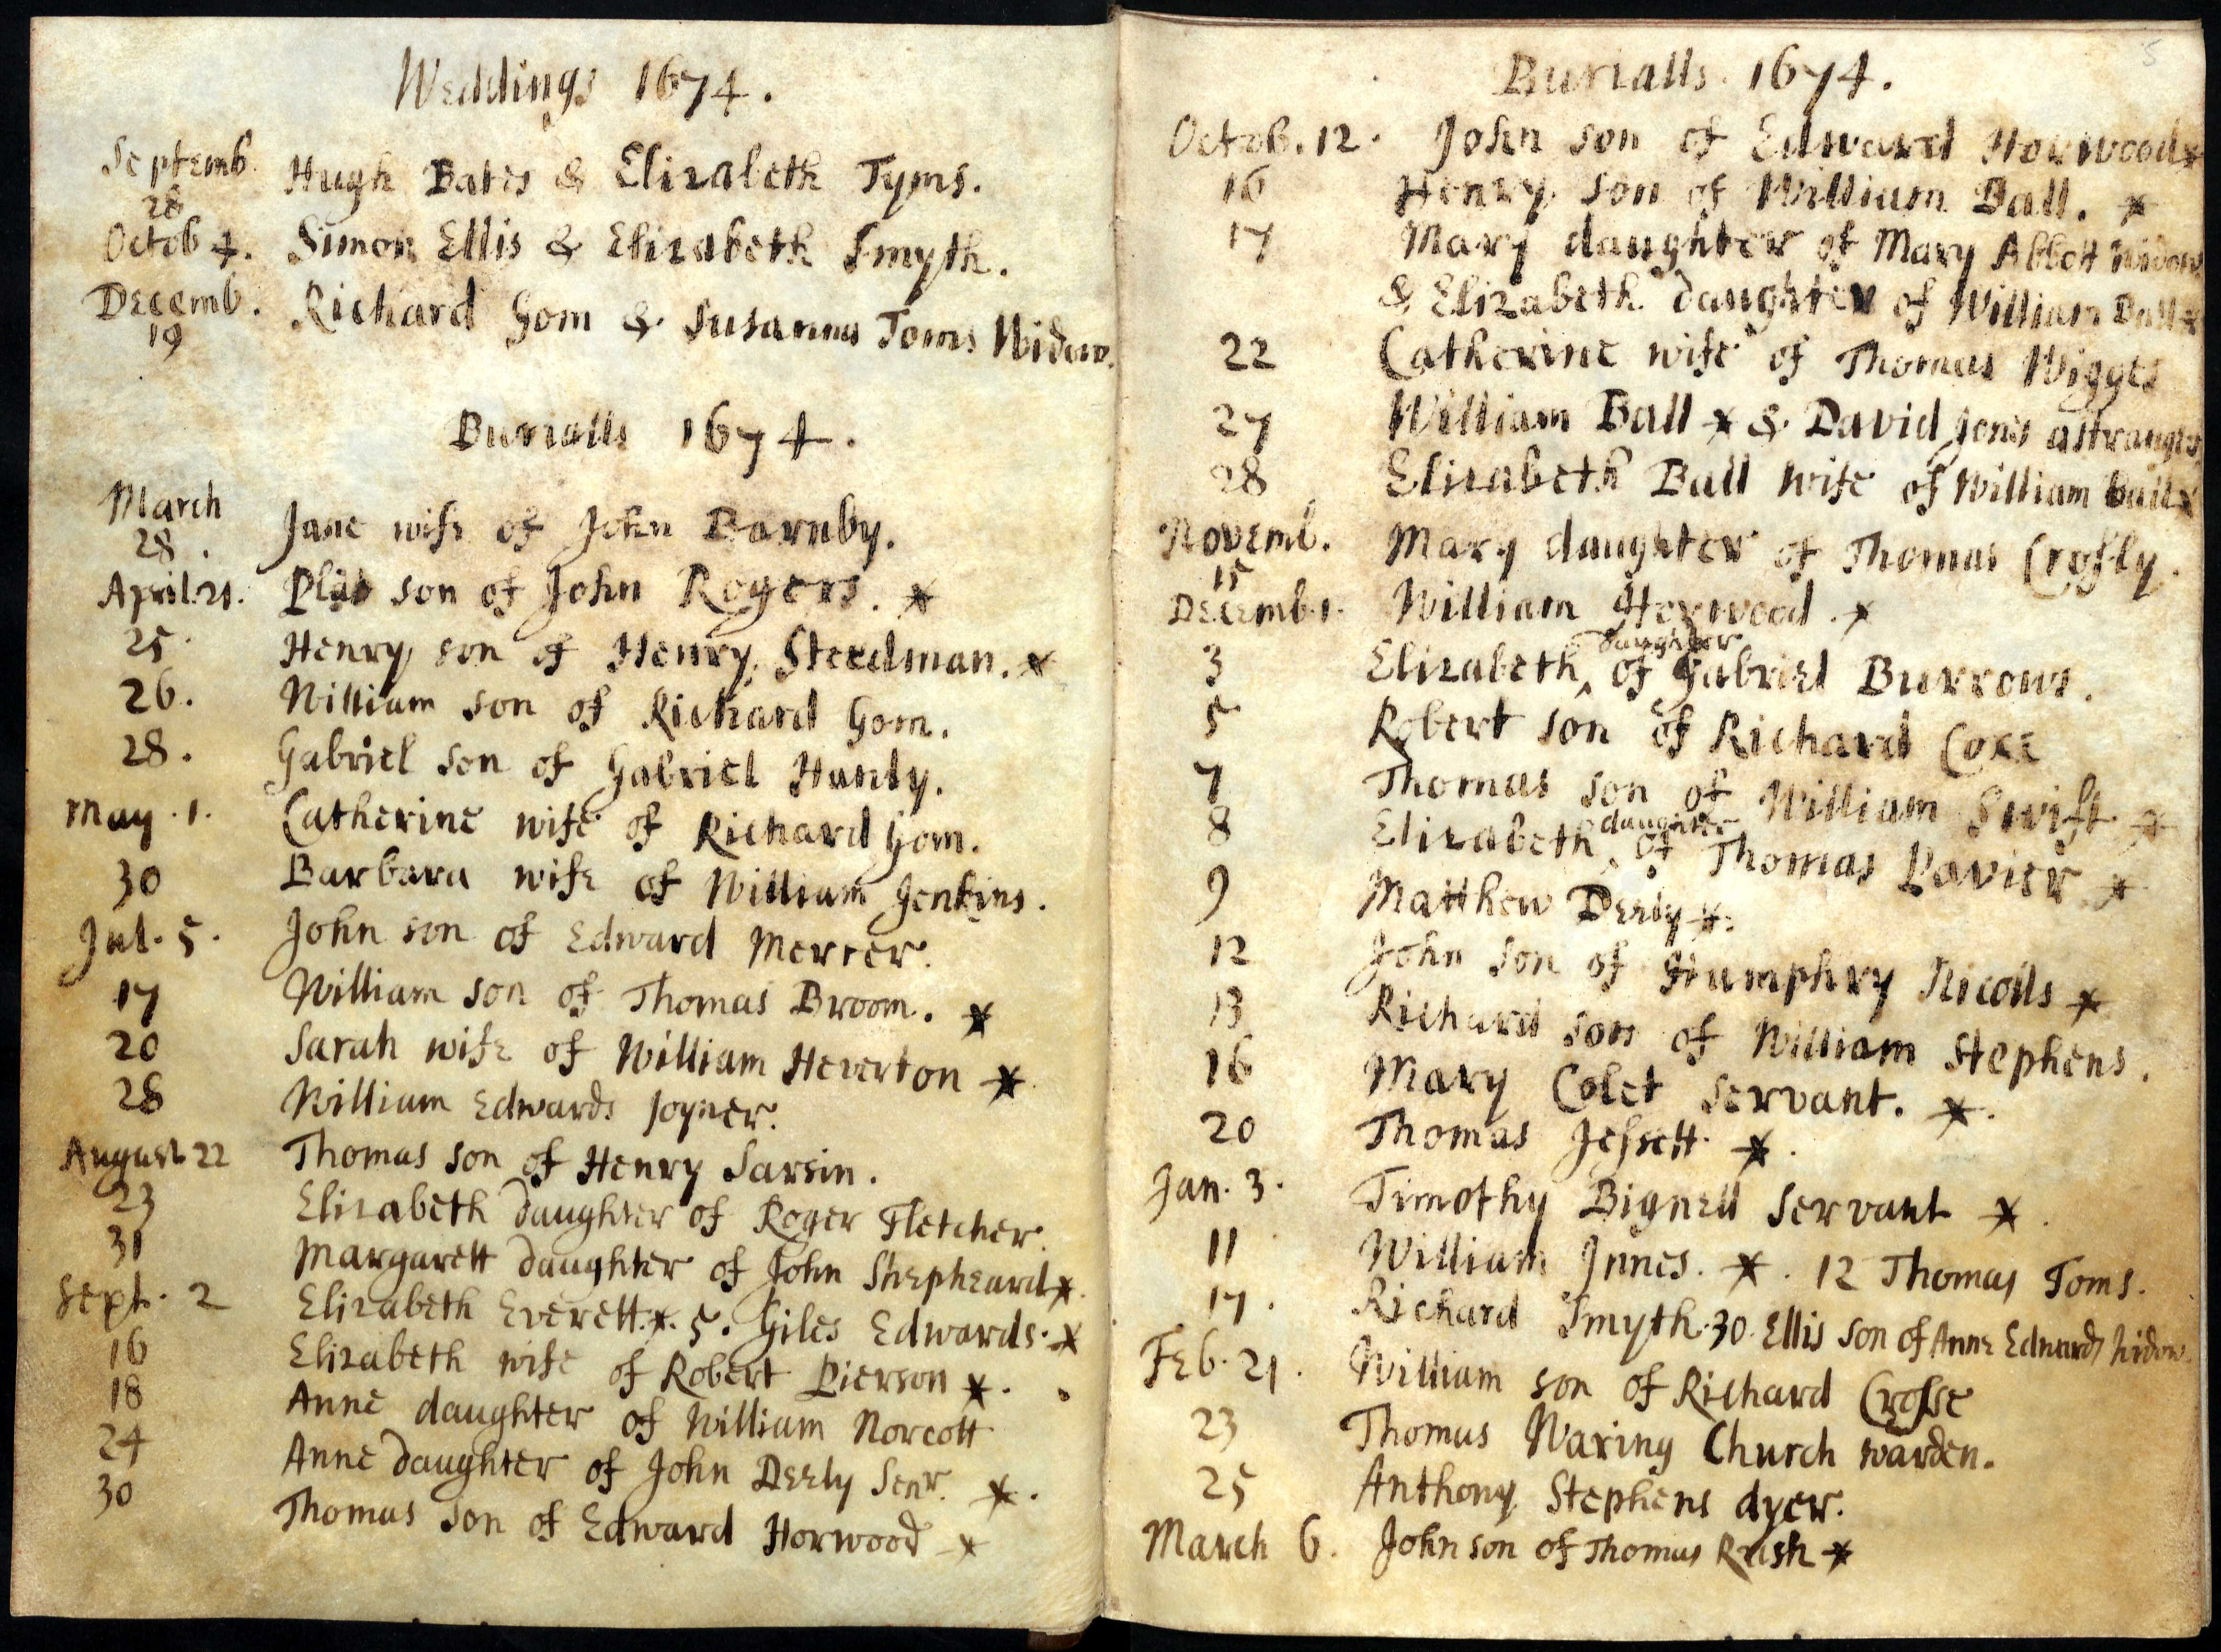 Weddings 1674.
Septemb. 28 Hugh Bates & Elizabeth Tyms.
Octob 4. Simon Ellis & Elizabeth Smyth.
Decemb. 19 Richard Gom & Susanna Toms Widow.
Burialls 1674.
March 28. Jane wife of John Barnby.
April. 21. son of John Rogers. *
25. Henry son of Henry Steedman. *
26. William son of Richard Gom.
28. Gabriel son of Gabriel Hanly.
May. 1. Catherine wife of Richard Gom.
30 Barbara wife of William Jenkins.
Jul. 5. John son of Edward Mercer.
17 William son of Thomas Broom. *
20 Sarah wife of William Heverton *
28 William Edwards Joyner.
August 22 Thomas son of Henry Sarsin.
23 Elizabeth daughter of Roger Fletcher.
31 Margarett daughter of John Shepheard *.
Sept. 2 Elizabeth Everett. *. 5. Giles Edwards. *
16 Elizabeth wife of Robert Pierson *.
18 Anne daughter of William Norcott
24 Anne daughter of John Deely Senr. *.
30 Thomas son of Edward Horwood *
5
Burialls. 1674.
Octob. 12. John son of Edward Horwood *
16 Henry son of William Ball. *
17 Mary daughter of Mary Abbott Widow
& Elizabeth daughter of William Ball *
22 Catherine wife of Thomas Wigges
27 William Ball * & David Jones a stranger
28 Elizabeth Ball wife of William Ball *
Novemb. 15 Mary daughter of Thomas Crosly.
Decemb. 1. William Horwood. *
3 Elizabeth ^daughter of Gabriel Burrows.
5 Robert son of Richard Coxe
7 Thomas son of William Swift *
8 Elizabeth ^daughter of Thomas Pavier. *
9 Matthew Deely *.
12 John son of Humphry Nicolls *
13 Richard son of William Stephens.
16 Mary Colet servant. *.
20 Thomas Jessett. *.
Jan. 3. Timothy Bignell servant *.
11 William Innes. *. 12 Thomas Toms.
17. Richard Smyth. 30. Ellis son of Anne Edwards Widow.
Feb. 21. William son of Richard Crosse
23 Thomas Waring Church warden.
25 Anthony Stephens dyer.
March 6. John son of Thomas Rush *